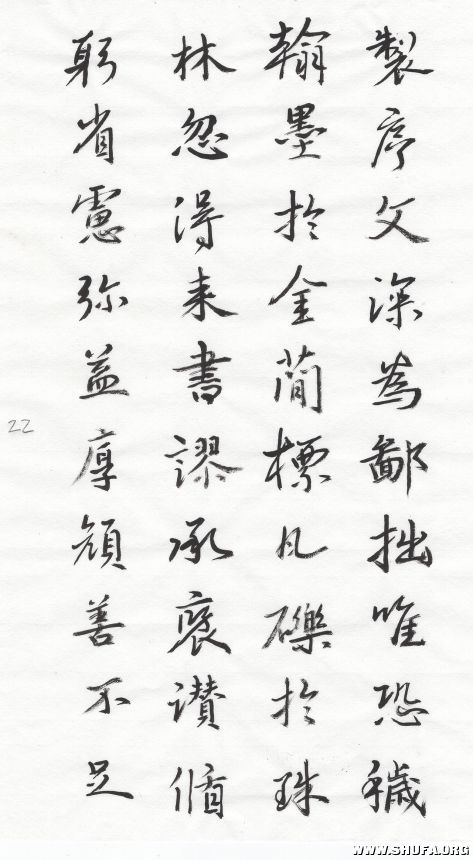 製序文深為鄙拙唯恐穢
翰墨於金簡標瓦礫於珠
林忽得来書謬承褒讃循
躬省慮弥益厚顏善不足
22
WWW.SHUFA.ORG